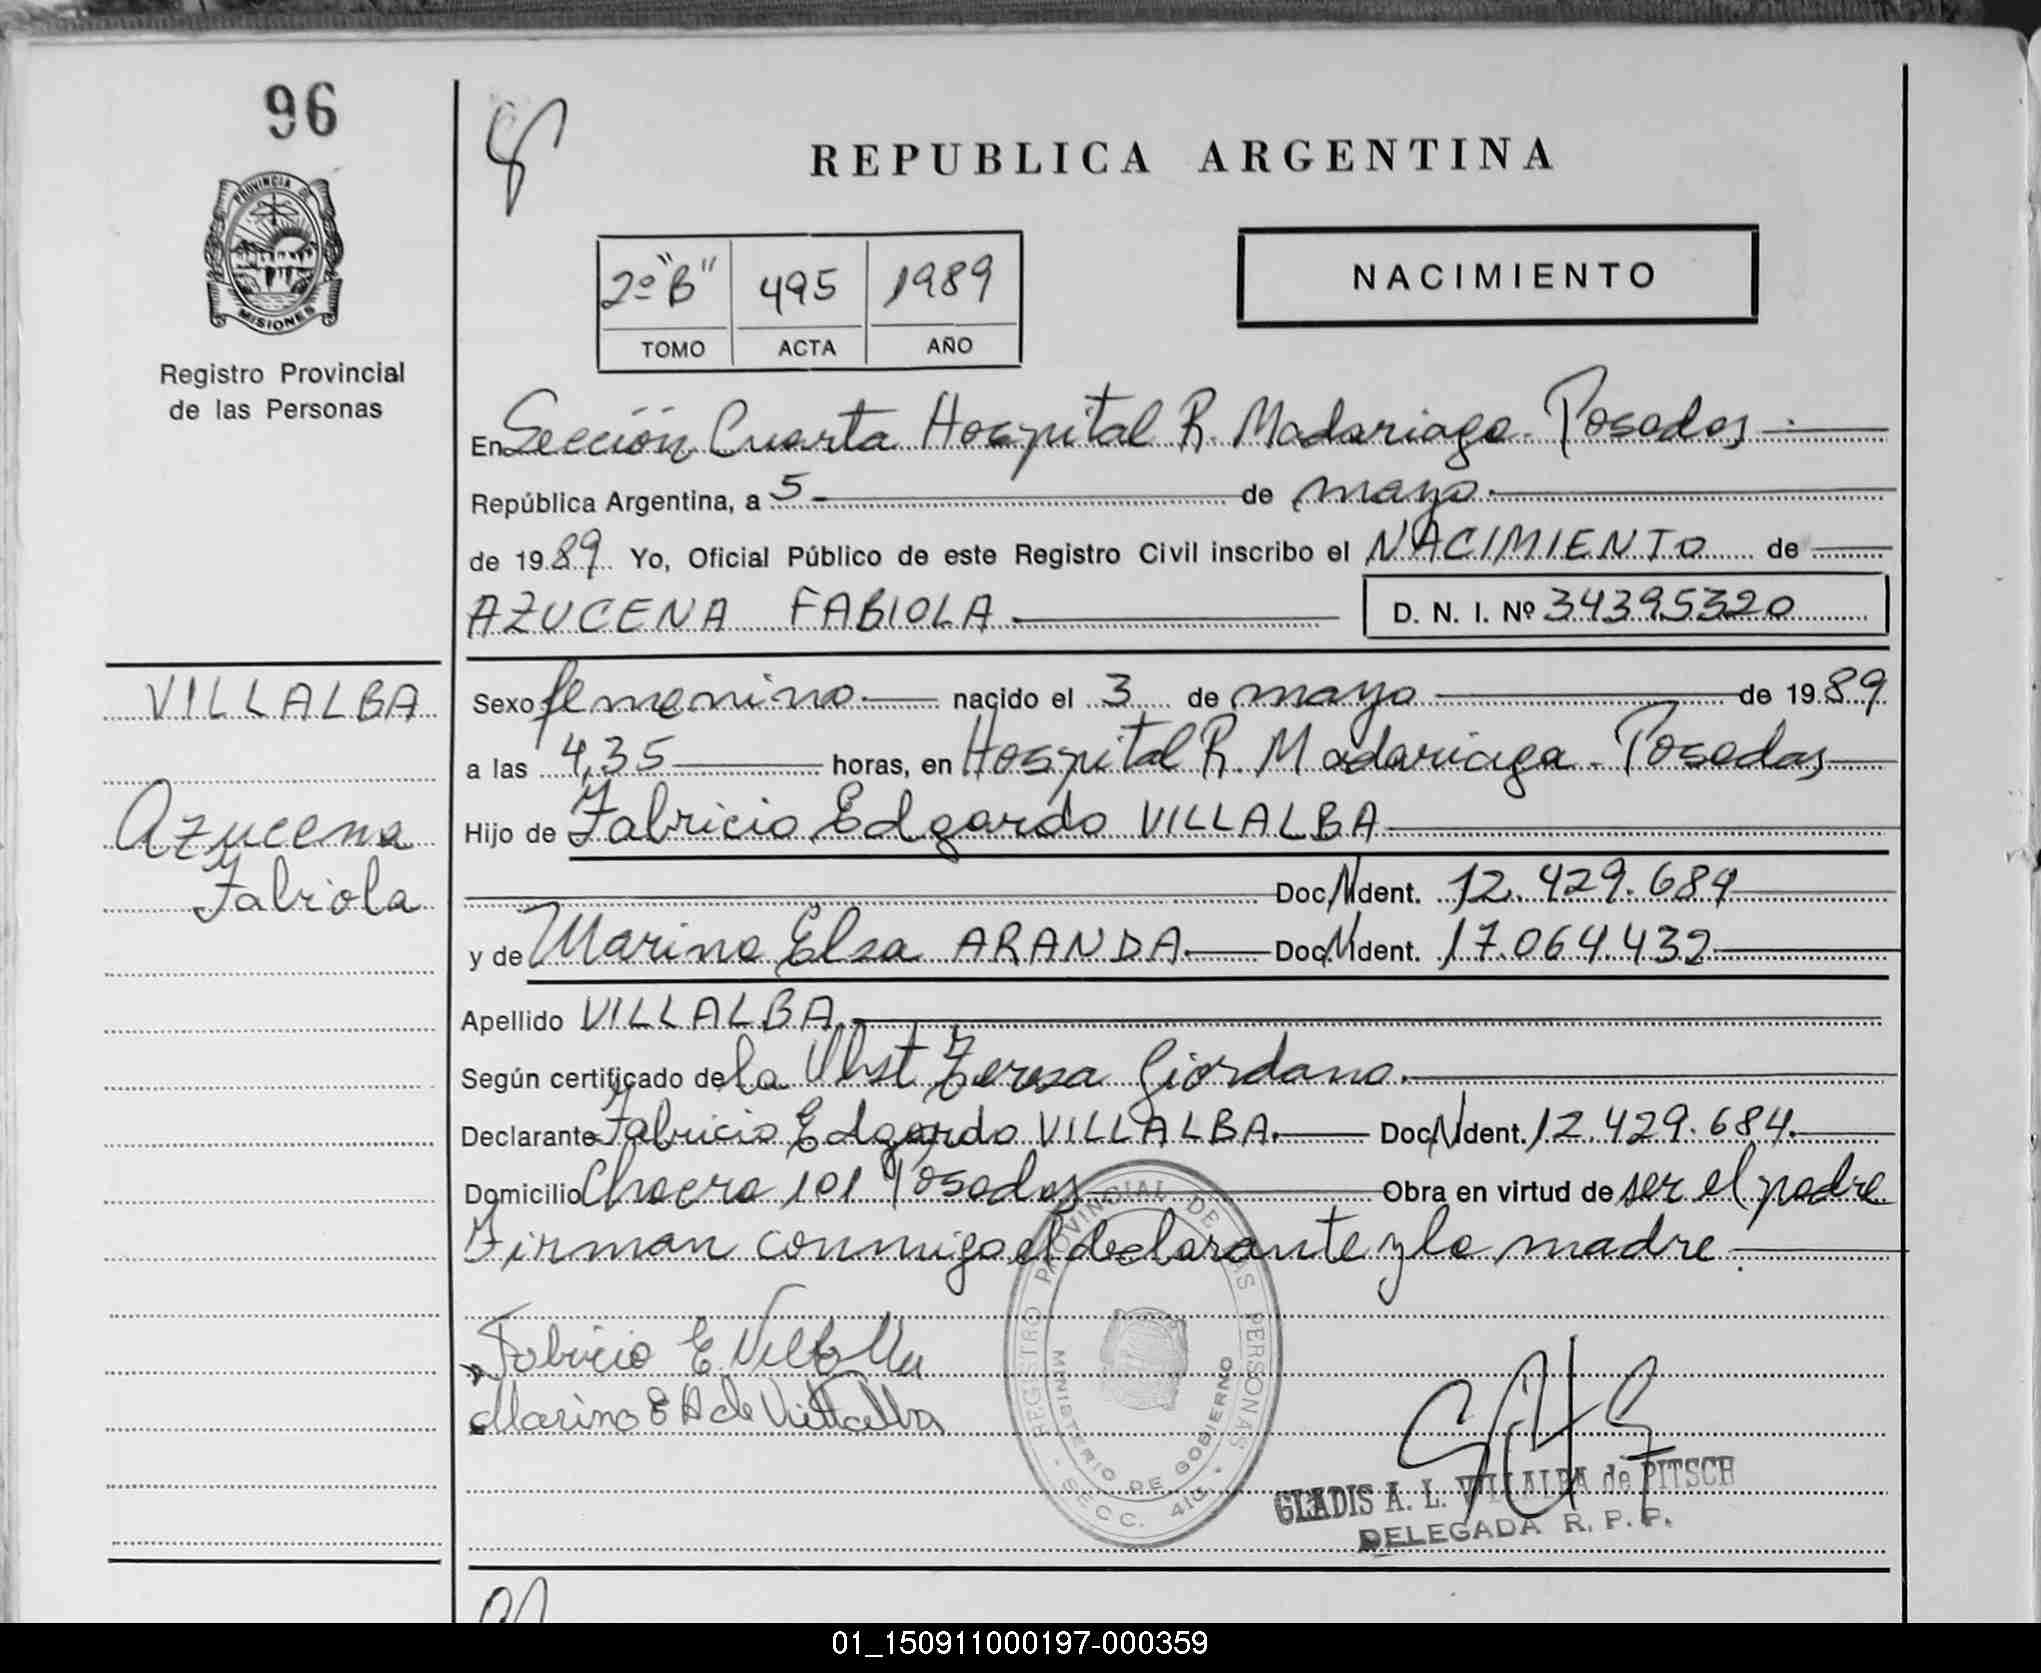 96
PROVINCIA DE
MISIONES
Registro Provincial
de las Personas
REPUBLICA ARGENTINA
2º "B" 495 1989
TOMO ACTA AÑO
NACIMIENTO
En Sección Cuarta Hospital R. Madariaga - Posadas
República Argentina, a 5 de mayo
de 1989 Yo, Oficial Público de este Registro Civil inscribo el NACIMIENTO de
AZUCENA FABIOLA D. N. I. Nº 34395320
VILLALBA
Azucena
Fabiola
Sexo femenino nacido el 3 de mayo de 1989
a las 4,35 horas, en Hospital R. Madariaga - Posadas
Hijo de Fabricio Edgardo VILLALBA
Doc. N Ident. 12.429.684
y de Marina Elsa ARANDA Doc. N Ident. 17.064.432
Apellido VILLALBA
Según certificado de la Obst Teresa Giordano.
Declarante Fabricio Edgardo VILLALBA. Doc. N Ident. 12.429.684.
Domicilio Chacra 101 Posadas Obra en virtud de ser el padre
Firman conmigo el declarante y la madre.
Fabricio E. Villalba
Marina E A de Villalba
REGISTRO PROVINCIAL DE LAS PERSONAS
MINISTERIO DE GOBIERNO
SECC. 4ta.
GLADIS A. L. VILLALBA de PITSCH
DELEGADA R. P. P.
01_150911000197-000359